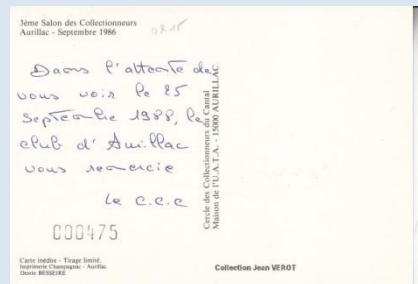 3ème Salon des Collectionneurs
Aurillac - Septembre 1986
Dans l'attente de
vous voir le 25
Septembre 1988, le
club d'Aurillac
vous remercie
Le C.C.C
000475
Cercle des Collectionneurs du Cantal
Maison de l'U.A.T.A. - 15000 AURILLAC
Carte inédite - Tirage limité.
Imprimerie Champagnac - Aurillac
Dessin BESSEIRE
Collection Jean VEROT